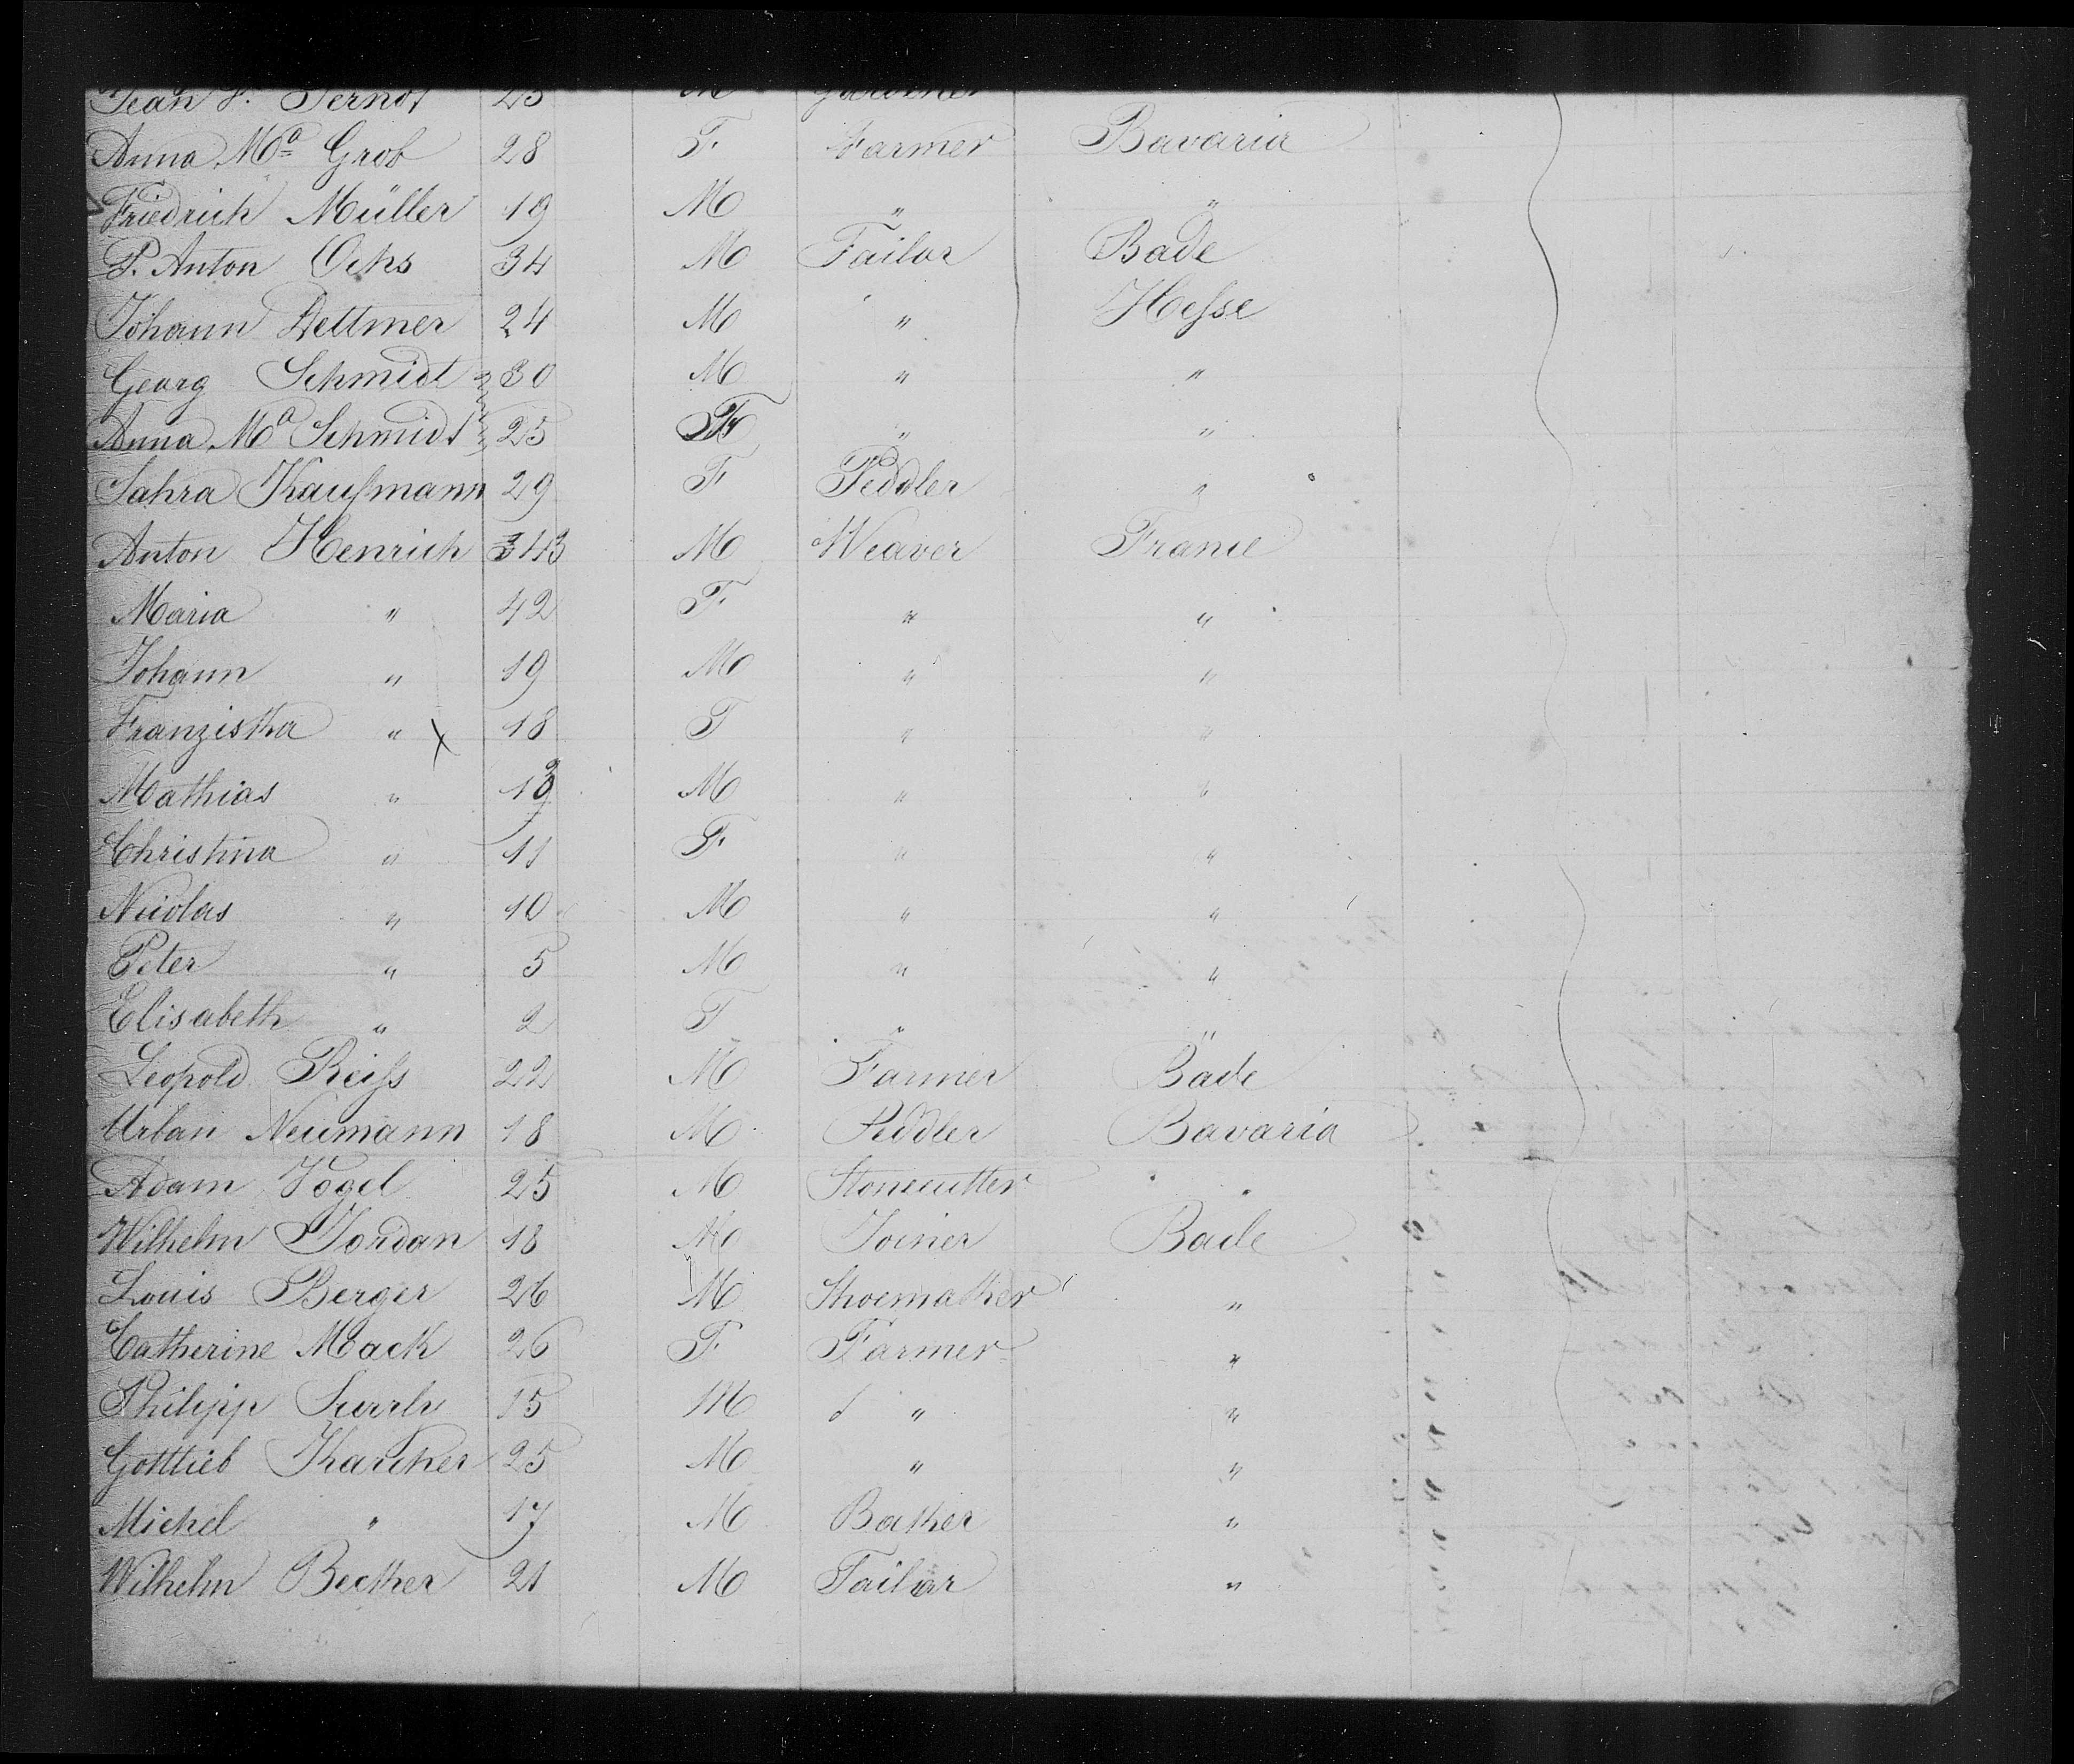 Jean 25 M Gardener
Anna Ma Grob 28 F Farmer Bavaria
Friedrich Müller 19 M " "
P. Anton Ochs 34 M Tailor Bade
Johann Dettmer 24 M " Hesse
Georg Schmidt 30 M " "
Anna Ma Schmidt 25 F " "
Sahra Kaufmann 29 F Peddler "
Anton Henrich 43 M Weaver France
Maria " 42 F " "
Johann " 19 M " "
Franziska " 18 F " "
Mathias " 13 M " "
Christina " 11 F " "
Nicolas " 10 M " "
Peter " 5 M " "
Elisabeth " 2 F " "
Leopold Reiss 22 M Farmer Bade
Urban Neumann 18 M Peddler Bavaria
Adam Vogel 25 M Stonecutter "
Wilhelm Jordan 18 M Joiner Bade
Louis Berger 26 M Shoemaker "
Catherine Mack 26 F Farmer "
Philipp 15 M " "
Gottlieb Karcher 25 M " "
Michel " 17 M Baker "
Wilhelm Becker 21 M Tailor "